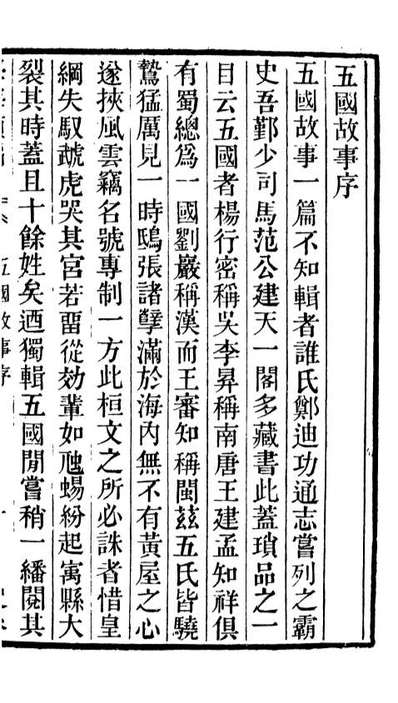 五國故事序
五國故事一篇不知輯者誰氏鄭迪功通志嘗列之霸
史吾鄞少司馬范公建天一閣多藏書此蓋瑣品之一
目云五國者楊行密稱吳李昇稱南唐王建孟知祥俱
有蜀總爲一國劉巖稱漢而王審知稱閩茲五氏皆驍
鷙猛厲見一時鴟張諸孽滿於海內無不有黃屋之心
遂挾風雲竊名號專制一方此桓文之所必誅者惜皇
綱失馭虣虎哭其宮若畱從効輩如虺蜴紛起寓縣大
裂其時蓋且十餘姓矣迺獨輯五國閒嘗稍一繙閱其
五國故事序